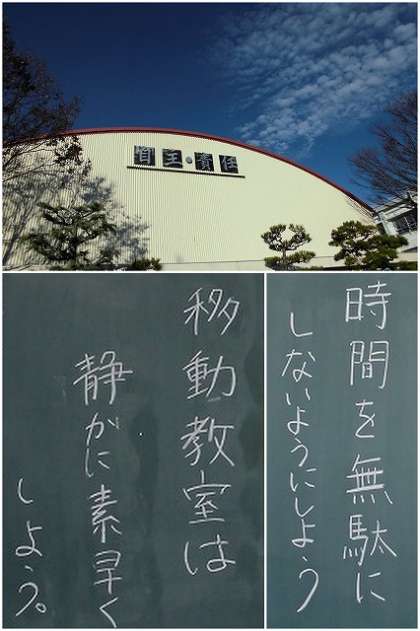 自主・責任
移動教室は
静かに素早く
しよう。
時間を無駄に
しないようにしよう